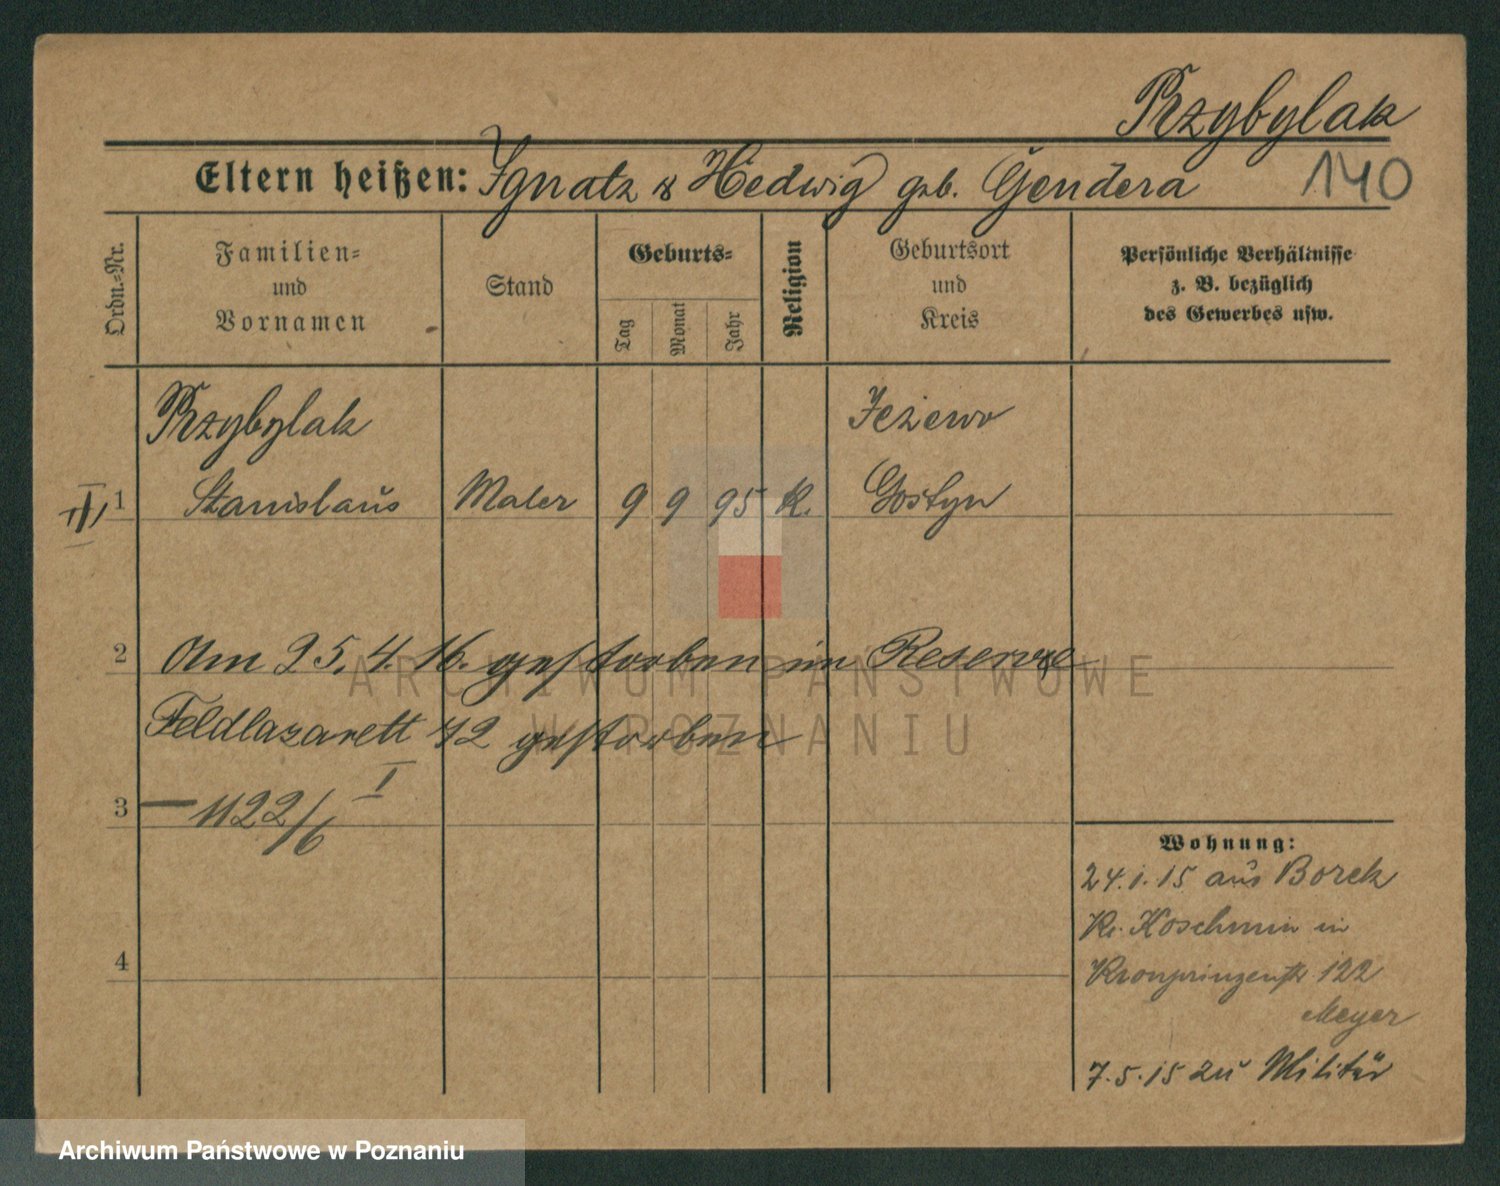 Przybylak
Eltern heißen: Ignatz & Hedwig geb. Gendera 140
Ordn.-Nr.
Familien-
und
Vornamen
Stand
Geburts-
Tag
Monat
Jahr
Religion
Geburtsort
und
Kreis
Persönliche Verhältnisse
z. B. bezüglich
des Gewerbes usw.
Przybylak Jeżewo
III 1 Stanislaus Maler 9 9 95 K. Gostyn
2 Am 25.4.16. gestorben im Reserve
Feldlazarett 42 gestorben
I
3 — 1122/6
4
Wohnung:
24.1.15 aus Borek
Kr. Koschmin in
Kronprinzenstr 122
Meyer
7.5.15 zu Militär
ARCHIWUM PAŃSTWOWE
W POZNANIU
Archiwum Państwowe w Poznaniu